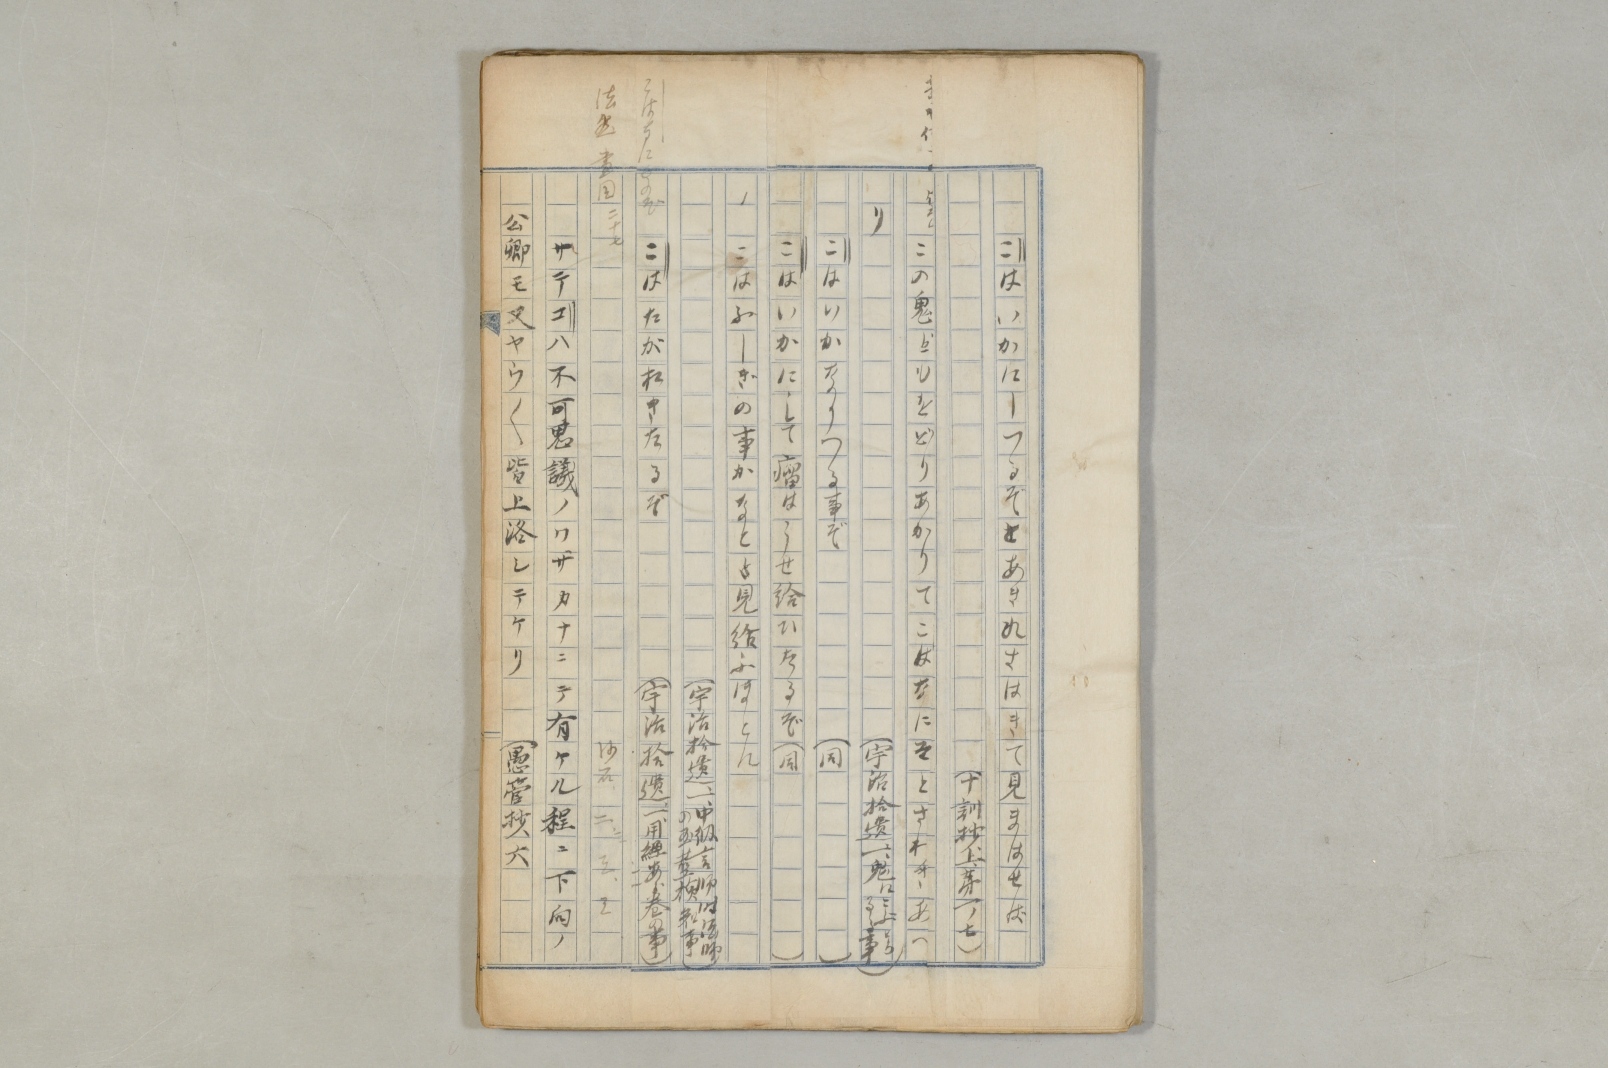 こはいかにしつるぞとあきれさはきて見まはせば
(十訓抄上、第一ノ七)
この鬼どもをどりあかりてこはなにぞとさわきあへ
り
(宇治拾遺一、鬼に
事)
こはいかなりつる事ぞ
(同)
こはいかにして瘤はうせ給ひたるぞ
(同)
こはふしぎの事かなとよ見給ふほとに
(宇治拾遺一、中納言師時法師
の玉茎検知事)
こはたがれきたるぞ
(宇治拾遺一、用経荒巻の事)
サテコハ不可思議ノワザカナニテ有ケル程ニ下向ノ
公卿モ又ヤウ〱皆上洛シテケリ
(愚管抄六